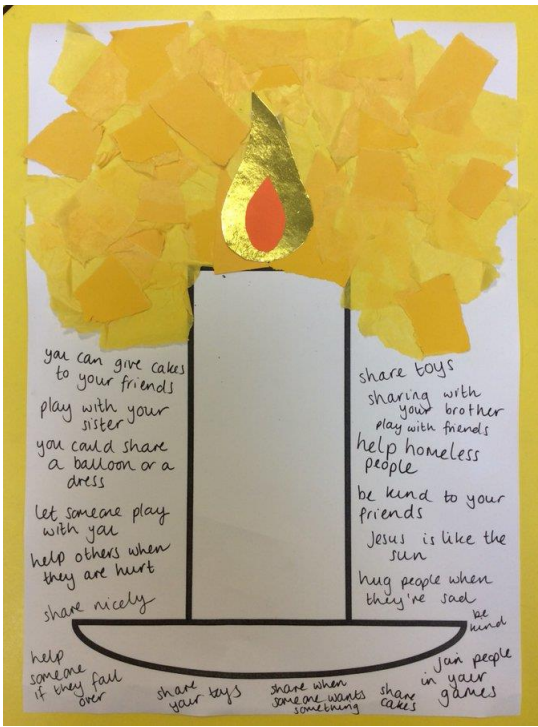 you can give cakes
to your friends
play with your
sister
you could share
a balloon or a
dress
let someone play
with you
help others when
they are hurt
share nicely
help
someone
if they fall
over
share
your toys
share when
someone wants
something
share
cakes
share toys
sharing with
your brother
play with friends
help homeless
people
be kind to your
friends
Jesus is like the
sun
hug people when
they're sad
be
kind
join people
in your
games